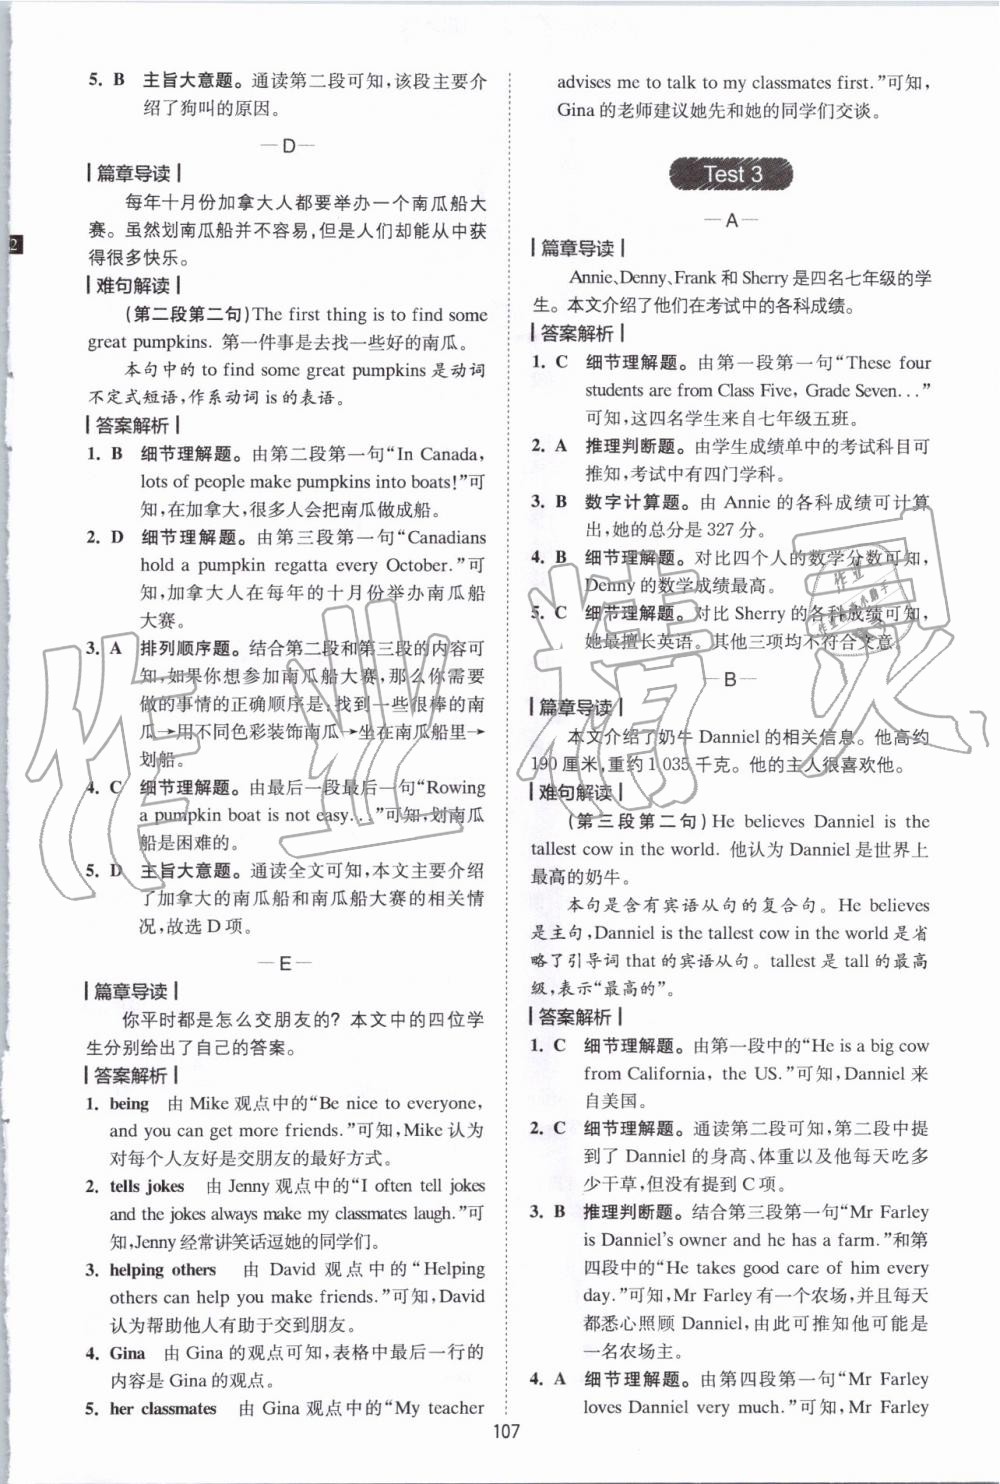 5. B 主旨大意题。通读第二段可知,该段主要介
绍了狗叫的原因。
—D—
篇章导读
每年十月份加拿大人都要举办一个南瓜船大
赛。虽然划南瓜船并不容易,但是人们却能从中获
得很多快乐。
难句解读
(第二段第二句)The first thing is to find some
great pumpkins. 第一件事是去找一些好的南瓜。
本句中的 to find some great pumpkins 是动词
不定式短语,作系动词 is 的表语。
答案解析
1. B 细节理解题。由第二段第一句“In Canada,
lots of people make pumpkins into boats!”可
知,在加拿大,很多人会把南瓜做成船。
2. D 细节理解题。由第三段第一句“Canadians
hold a pumpkin regatta every October.”可
知,加拿大人在每年的十月份举办南瓜船
大赛。
3. A 排列顺序题。结合第二段和第三段的内容可
知,如果你想参加南瓜船大赛,那么你需要
做的事情的正确顺序是:找到一些很棒的南
瓜→用不同色彩装饰南瓜→坐在南瓜船里→
划船。
4. C 细节理解题。由最后一段最后一句“Rowing
a pumpkin boat is not easy. . .”可知,划南瓜
船是困难的。
5. D 主旨大意题。通读全文可知,本文主要介绍
了加拿大的南瓜船和南瓜船大赛的相关情
况,故选 D 项。
—E—
篇章导读
你平时都是怎么交朋友的? 本文中的四位学
生分别给出了自己的答案。
答案解析
1. being 由 Mike 观点中的“Be nice to everyone,
and you can get more friends.”可知,Mike 认为
对每个人友好是交朋友的最好方式。
2. tells jokes 由 Jenny 观点中的“I often tell jokes
and the jokes always make my classmates laugh.”可
知,Jenny 经常讲笑话逗她的同学们。
3. helping others 由 David 观点中的“Helping
others can help you make friends.”可知,David
认为帮助他人有助于交到朋友。
4. Gina 由 Gina 的观点可知,表格中最后一行的
内容是 Gina 的观点。
5. her classmates 由 Gina 观点中的“My teacher
advises me to talk to my classmates first.”可知,
Gina 的老师建议她先和她的同学们交谈。
Test 3
—A—
篇章导读
Annie、Denny、Frank 和 Sherry 是四名七年级的学
生。本文介绍了他们在考试中的各科成绩。
答案解析
1. C 细节理解题。由第一段第一句“These four
students are from Class Five, Grade Seven. . .”
可知,这四名学生来自七年级五班。
2. A 推理判断题。由学生成绩单中的考试科目可
推知,考试中有四门学科。
3. B 数字计算题。由 Annie 的各科成绩可计算
出,她的总分是 327 分。
4. B 细节理解题。对比四个人的数学分数可知,
Denny 的数学成绩最高。
5. C 细节理解题。对比 Sherry 的各科成绩可知,
她最擅长英语。其他三项均不符合文意。
—B—
篇章导读
本文介绍了奶牛 Danniel 的相关信息。他高约
190 厘米,重约 1 035 千克。他的主人很喜欢他。
难句解读
(第三段第二句) He believes Danniel is the
tallest cow in the world. 他认为 Danniel 是世界上
最高的奶牛。
本句是含有宾语从句的复合句。He believes
是主句,Danniel is the tallest cow in the world 是省
略了引导词 that 的宾语从句。tallest 是 tall 的最高
级,表示“最高的”。
答案解析
1. C 细节理解题。由第一段中的“He is a big cow
from California, the US.”可知,Danniel 来
自美国。
2. C 细节理解题。通读第二段可知,第二段中提
到了 Danniel 的身高、体重以及他每天吃多
少干草,但没有提到 C 项。
3. B 推理判断题。结合第三段第一句“Mr Farley
is Danniel's owner and he has a farm.”和第
四段中的“He takes good care of him every
day.”可知,Mr Farley 有一个农场,并且每天
都悉心照顾 Danniel,由此可推知他可能是
一名农场主。
4. A 细节理解题。由第四段第一句“Mr Farley
loves Danniel very much.”可知,Mr Farley
107
2
作业精灵